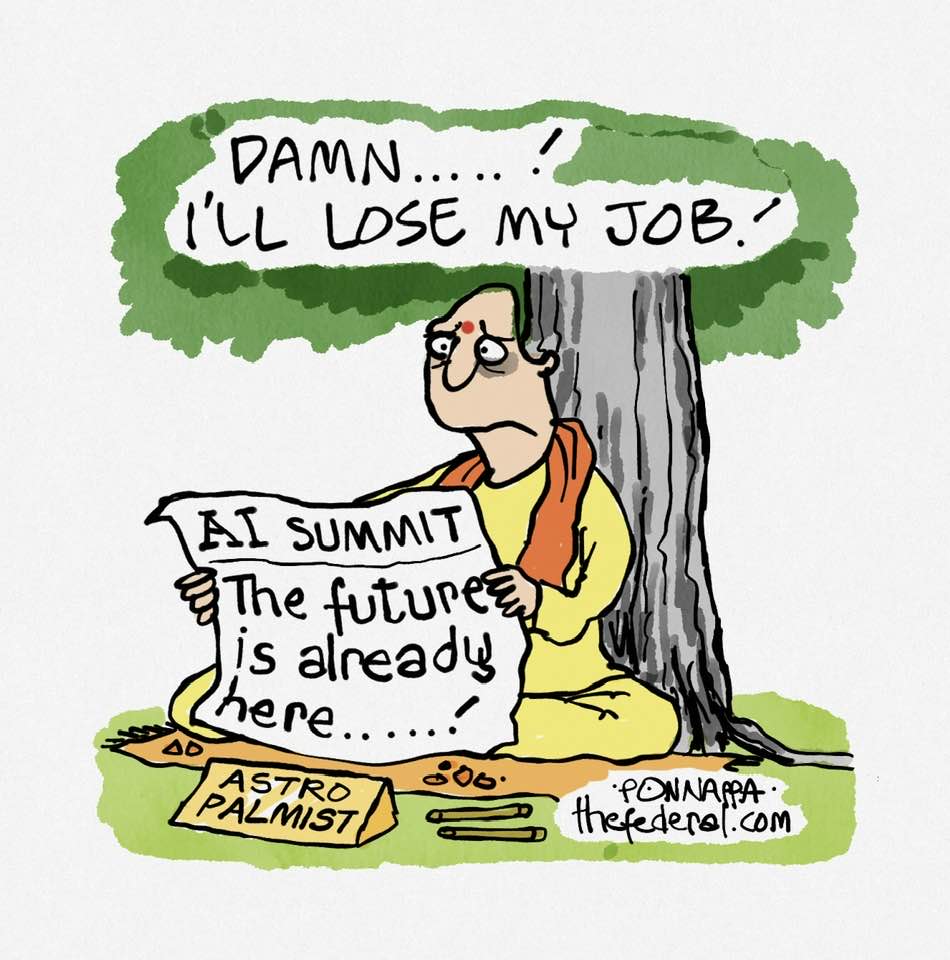 DAMN.....!
I'LL LOSE MY JOB!
AI SUMMIT
The future
is already
here......!
ASTRO
PALMIST
·PONNAPPA·
thefederal.com